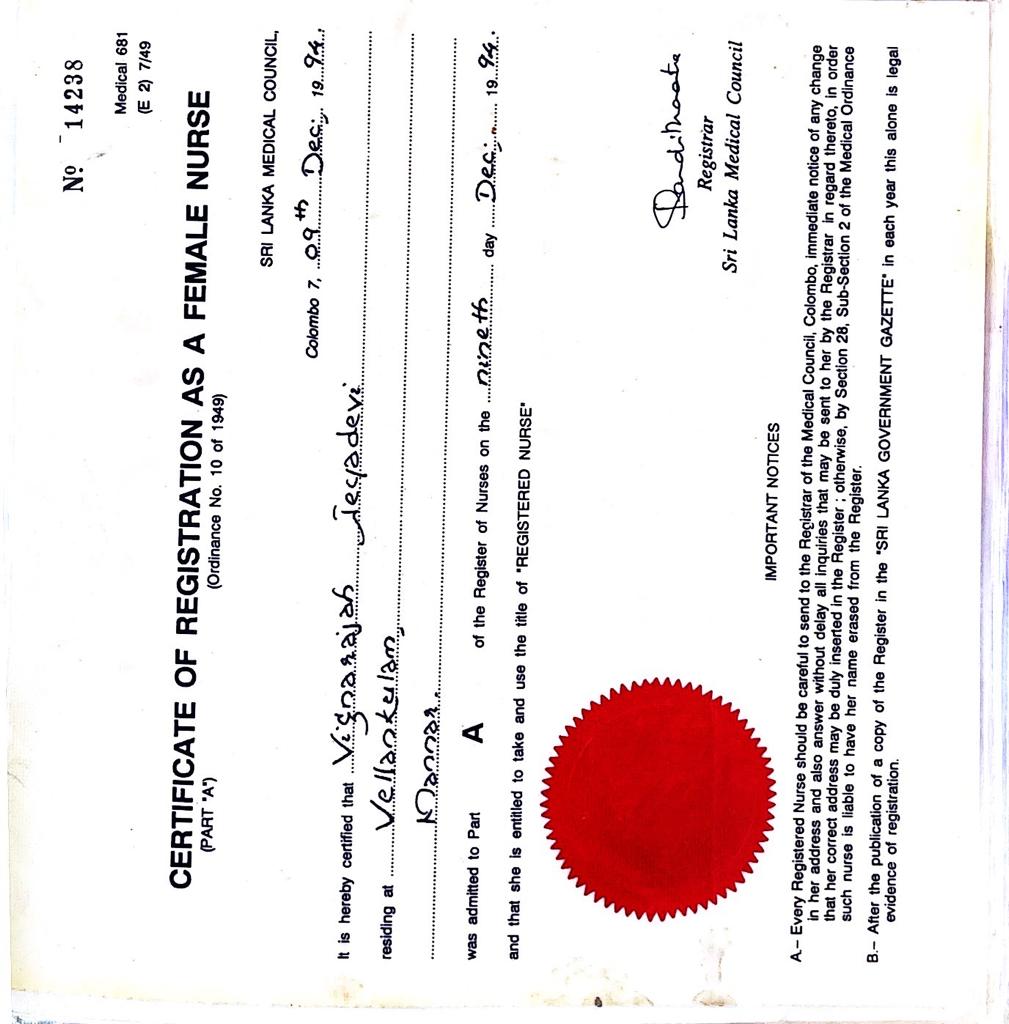 Nº 14238
Medical 681
(E 2) 7/49
CERTIFICATE OF REGISTRATION AS A FEMALE NURSE
(PART "A")
(Ordinance No. 10 of 1949)
SRI LANKA MEDICAL COUNCIL,
Colombo 7, 09th Dec; 1994.
It is hereby certified that Vignarajah Jeyadevi
residing at Vellankulam,
Mannar.
was admitted to Part A of the Register of Nurses on the nineth day Dec; 1994.
and that she is entitled to take and use the title of "REGISTERED NURSE"
Registrar
Sri Lanka Medical Council
IMPORTANT NOTICES
A.– Every Registered Nurse should be careful to send to the Registrar of the Medical Council, Colombo, immediate notice of any change
in her address and also answer without delay all inquiries that may be sent to her by the Registrar in regard thereto, in order
that her correct address may be duly inserted in the Register ; otherwise, by Section 28, Sub-Section 2 of the Medical Ordinance
such nurse is liable to have her name erased from the Register.
B.– After the publication of a copy of the Register in the "SRI LANKA GOVERNMENT GAZETTE" in each year this alone is legal
evidence of registration.